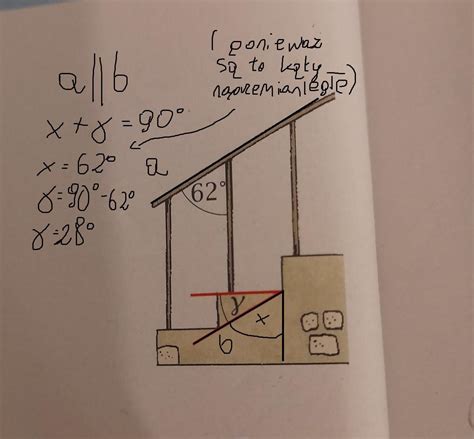 ( ponieważ
są to kąty
naprzemianległe)
a||b
x + γ = 90°
x = 62°
γ = 90° - 62°
γ = 28°
a
62°
γ
x
b